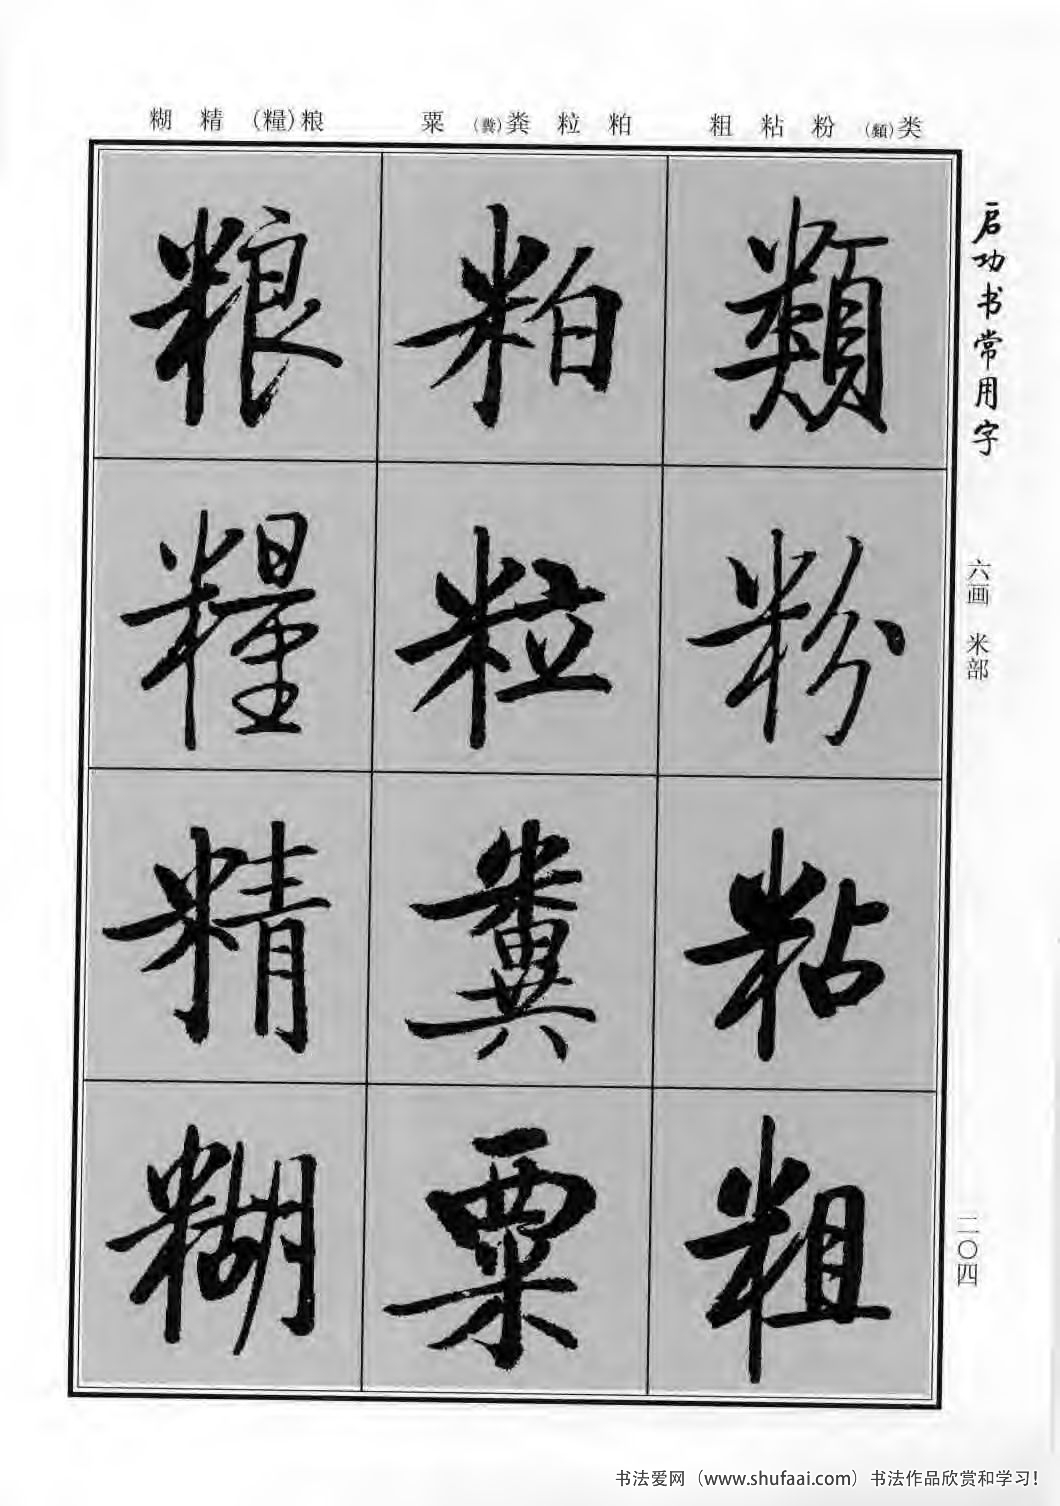 类(類) 粉 粘 粗
粕 粒 粪(糞) 粟
粮(糧) 精 糊
類
粉
粘
粗
粕
粒
糞
粟
粮
糧
精
糊
启功书常用字
六画 米部
二〇四
书法爱网（www.shufaai.com）书法作品欣赏和学习!